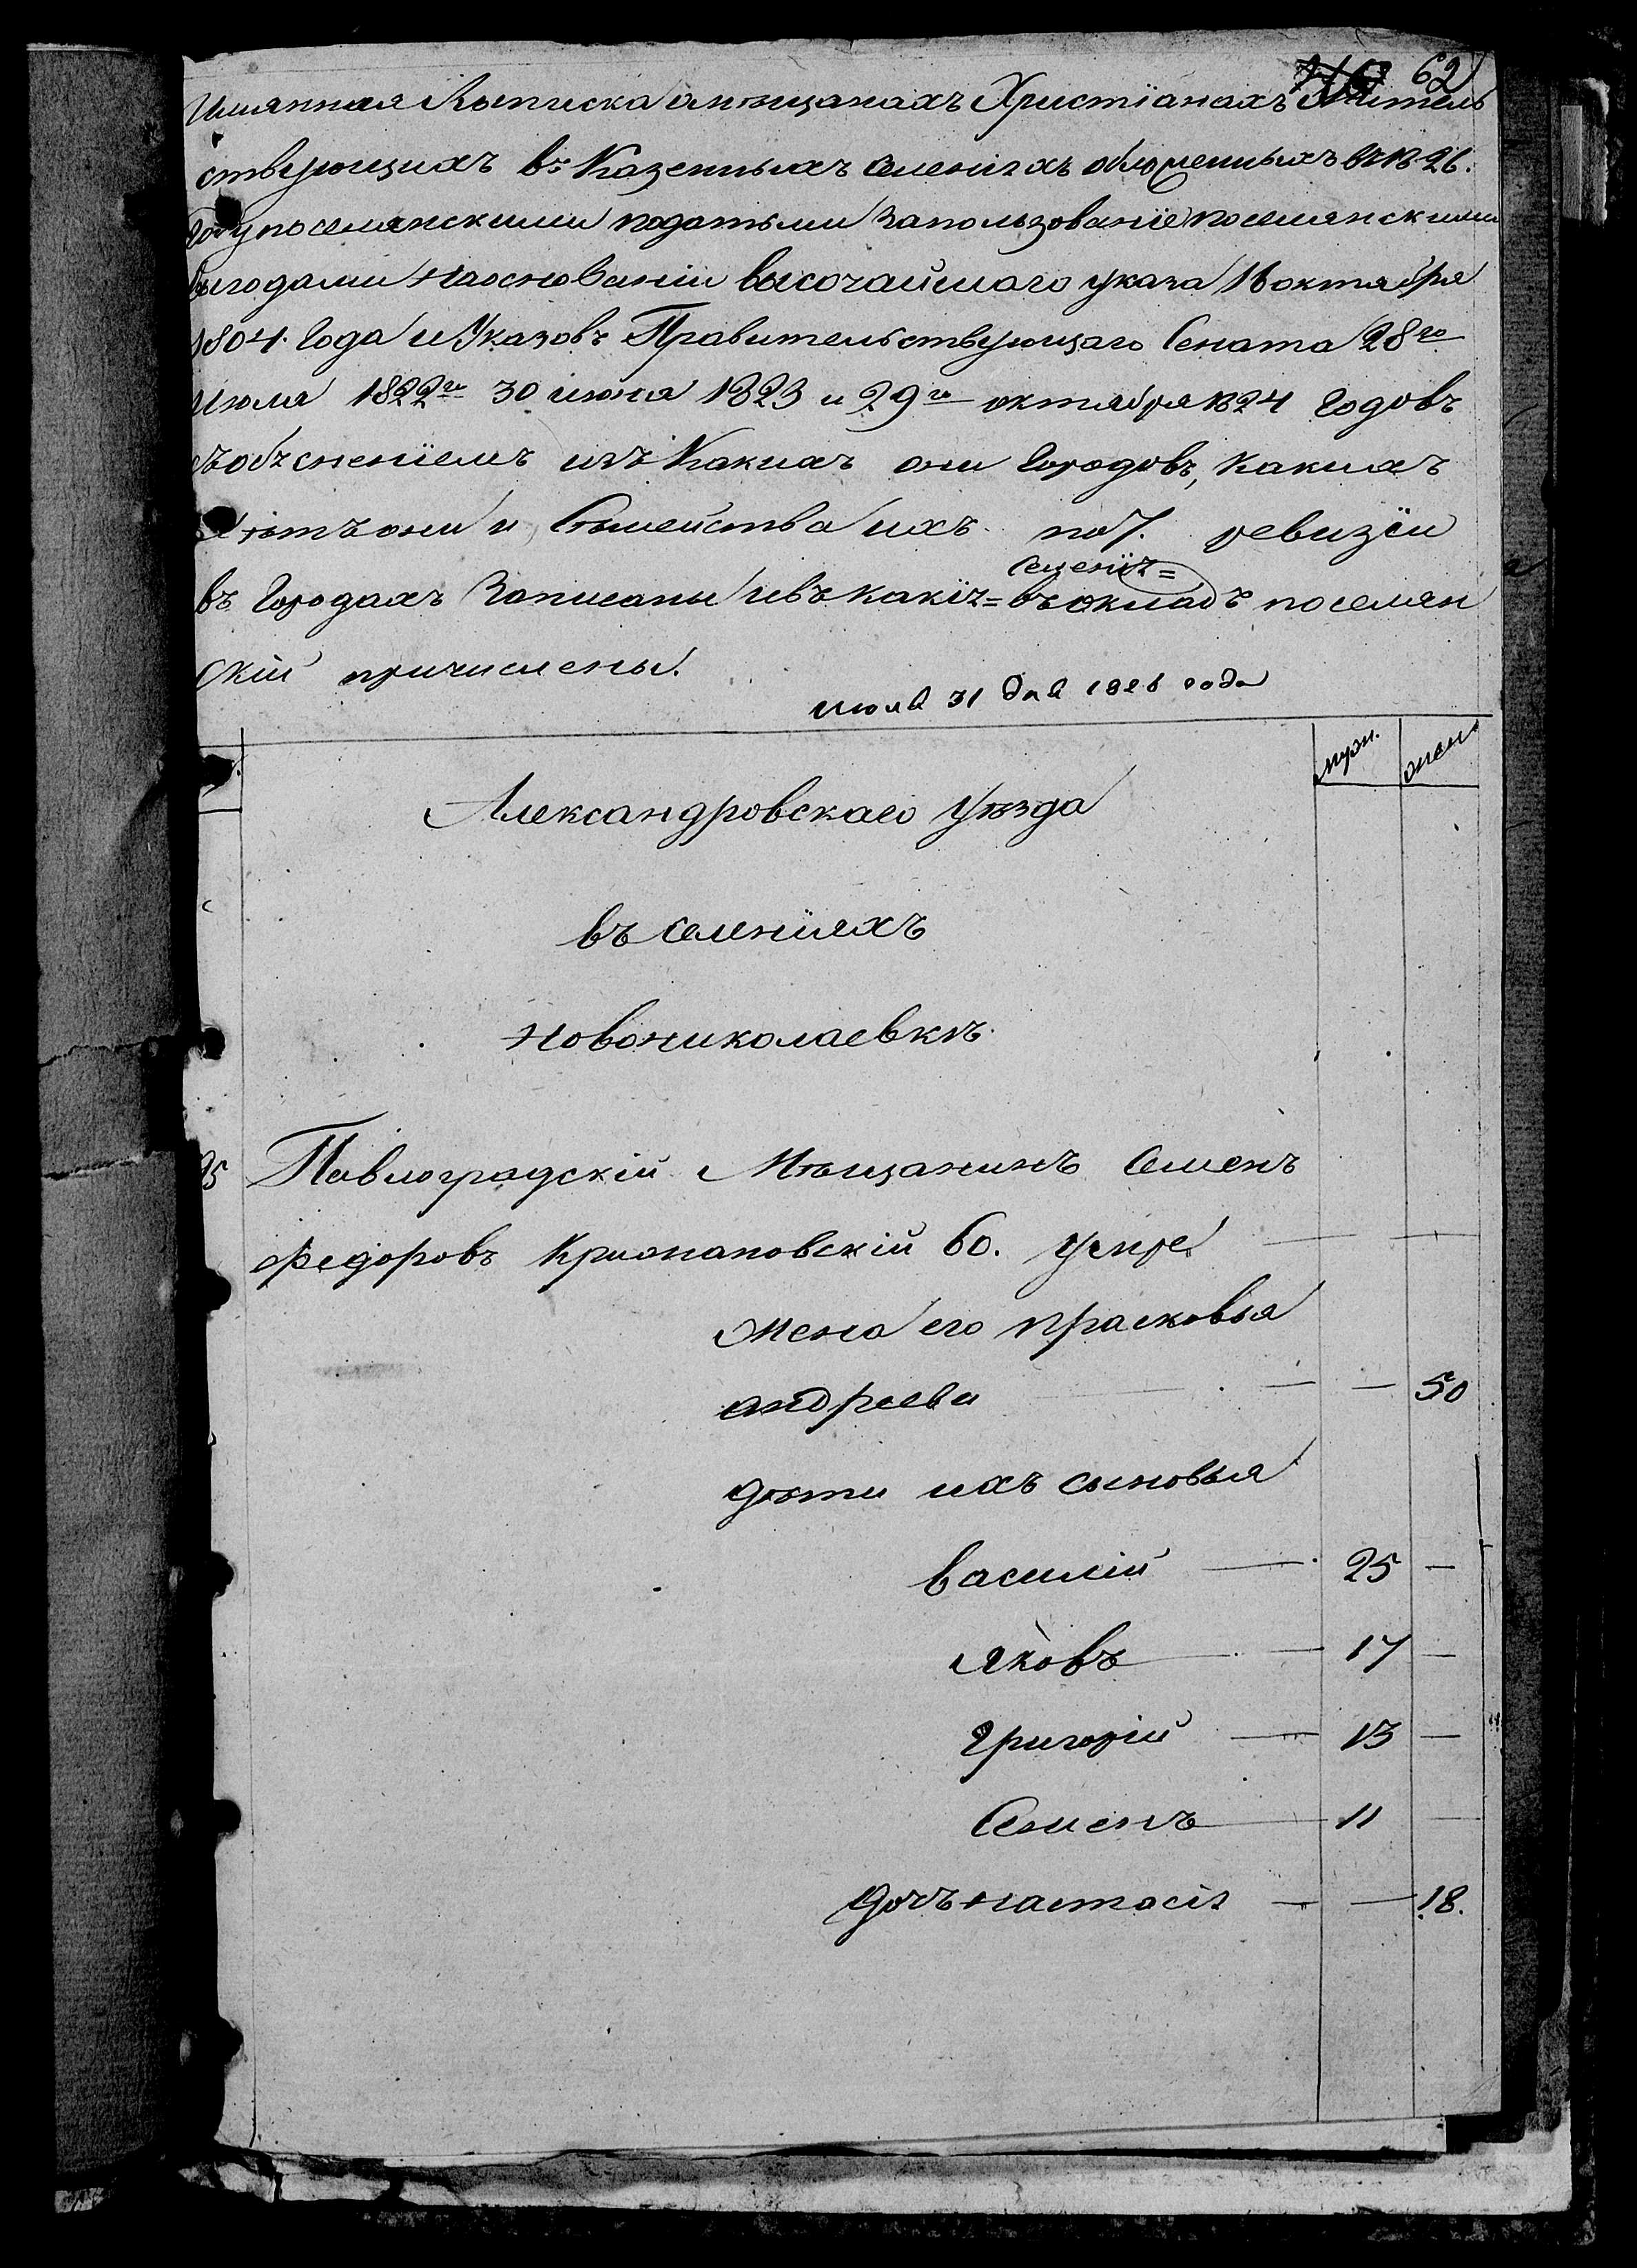 62
Имянная Выписка о мещанахъ Христіанахъ Житель
ствующихъ въ Казенныхъ селеніяхъ обложенныхъ въ 1826.
Году поселянскими податьми За пользованіе поселянскими
выгодами На основаніи высочайшаго указа 18 октября
1804. Года и Указовъ Правительствующаго Сената 28го
июля 1822го 30 июня 1823 и 29го октября 1824 Годовъ
съ объсненіемъ изъ Какихъ они Городовъ, Какихъ
лѣтъ они и Сѣмейства ихъ по 7. ревизіи
селеніх=
въ Городахъ Записаны и въ какіх= въ окладъ поселян
скій причислены.
июля 31 дня 1826 года
муж. жен.
Александровскаго Уѣзда
въ селеніяхъ
Новониколаевкѣ.
95 Павлоградскій Мѣщанинъ Семенъ
Федоровъ Крижановскій 60. умре
Жена его прасковья
андреева 50
дѣти ихъ сыновья
василій 25
Яковъ 17
Григорій 13
Семенъ 11
дочь настасія 18.